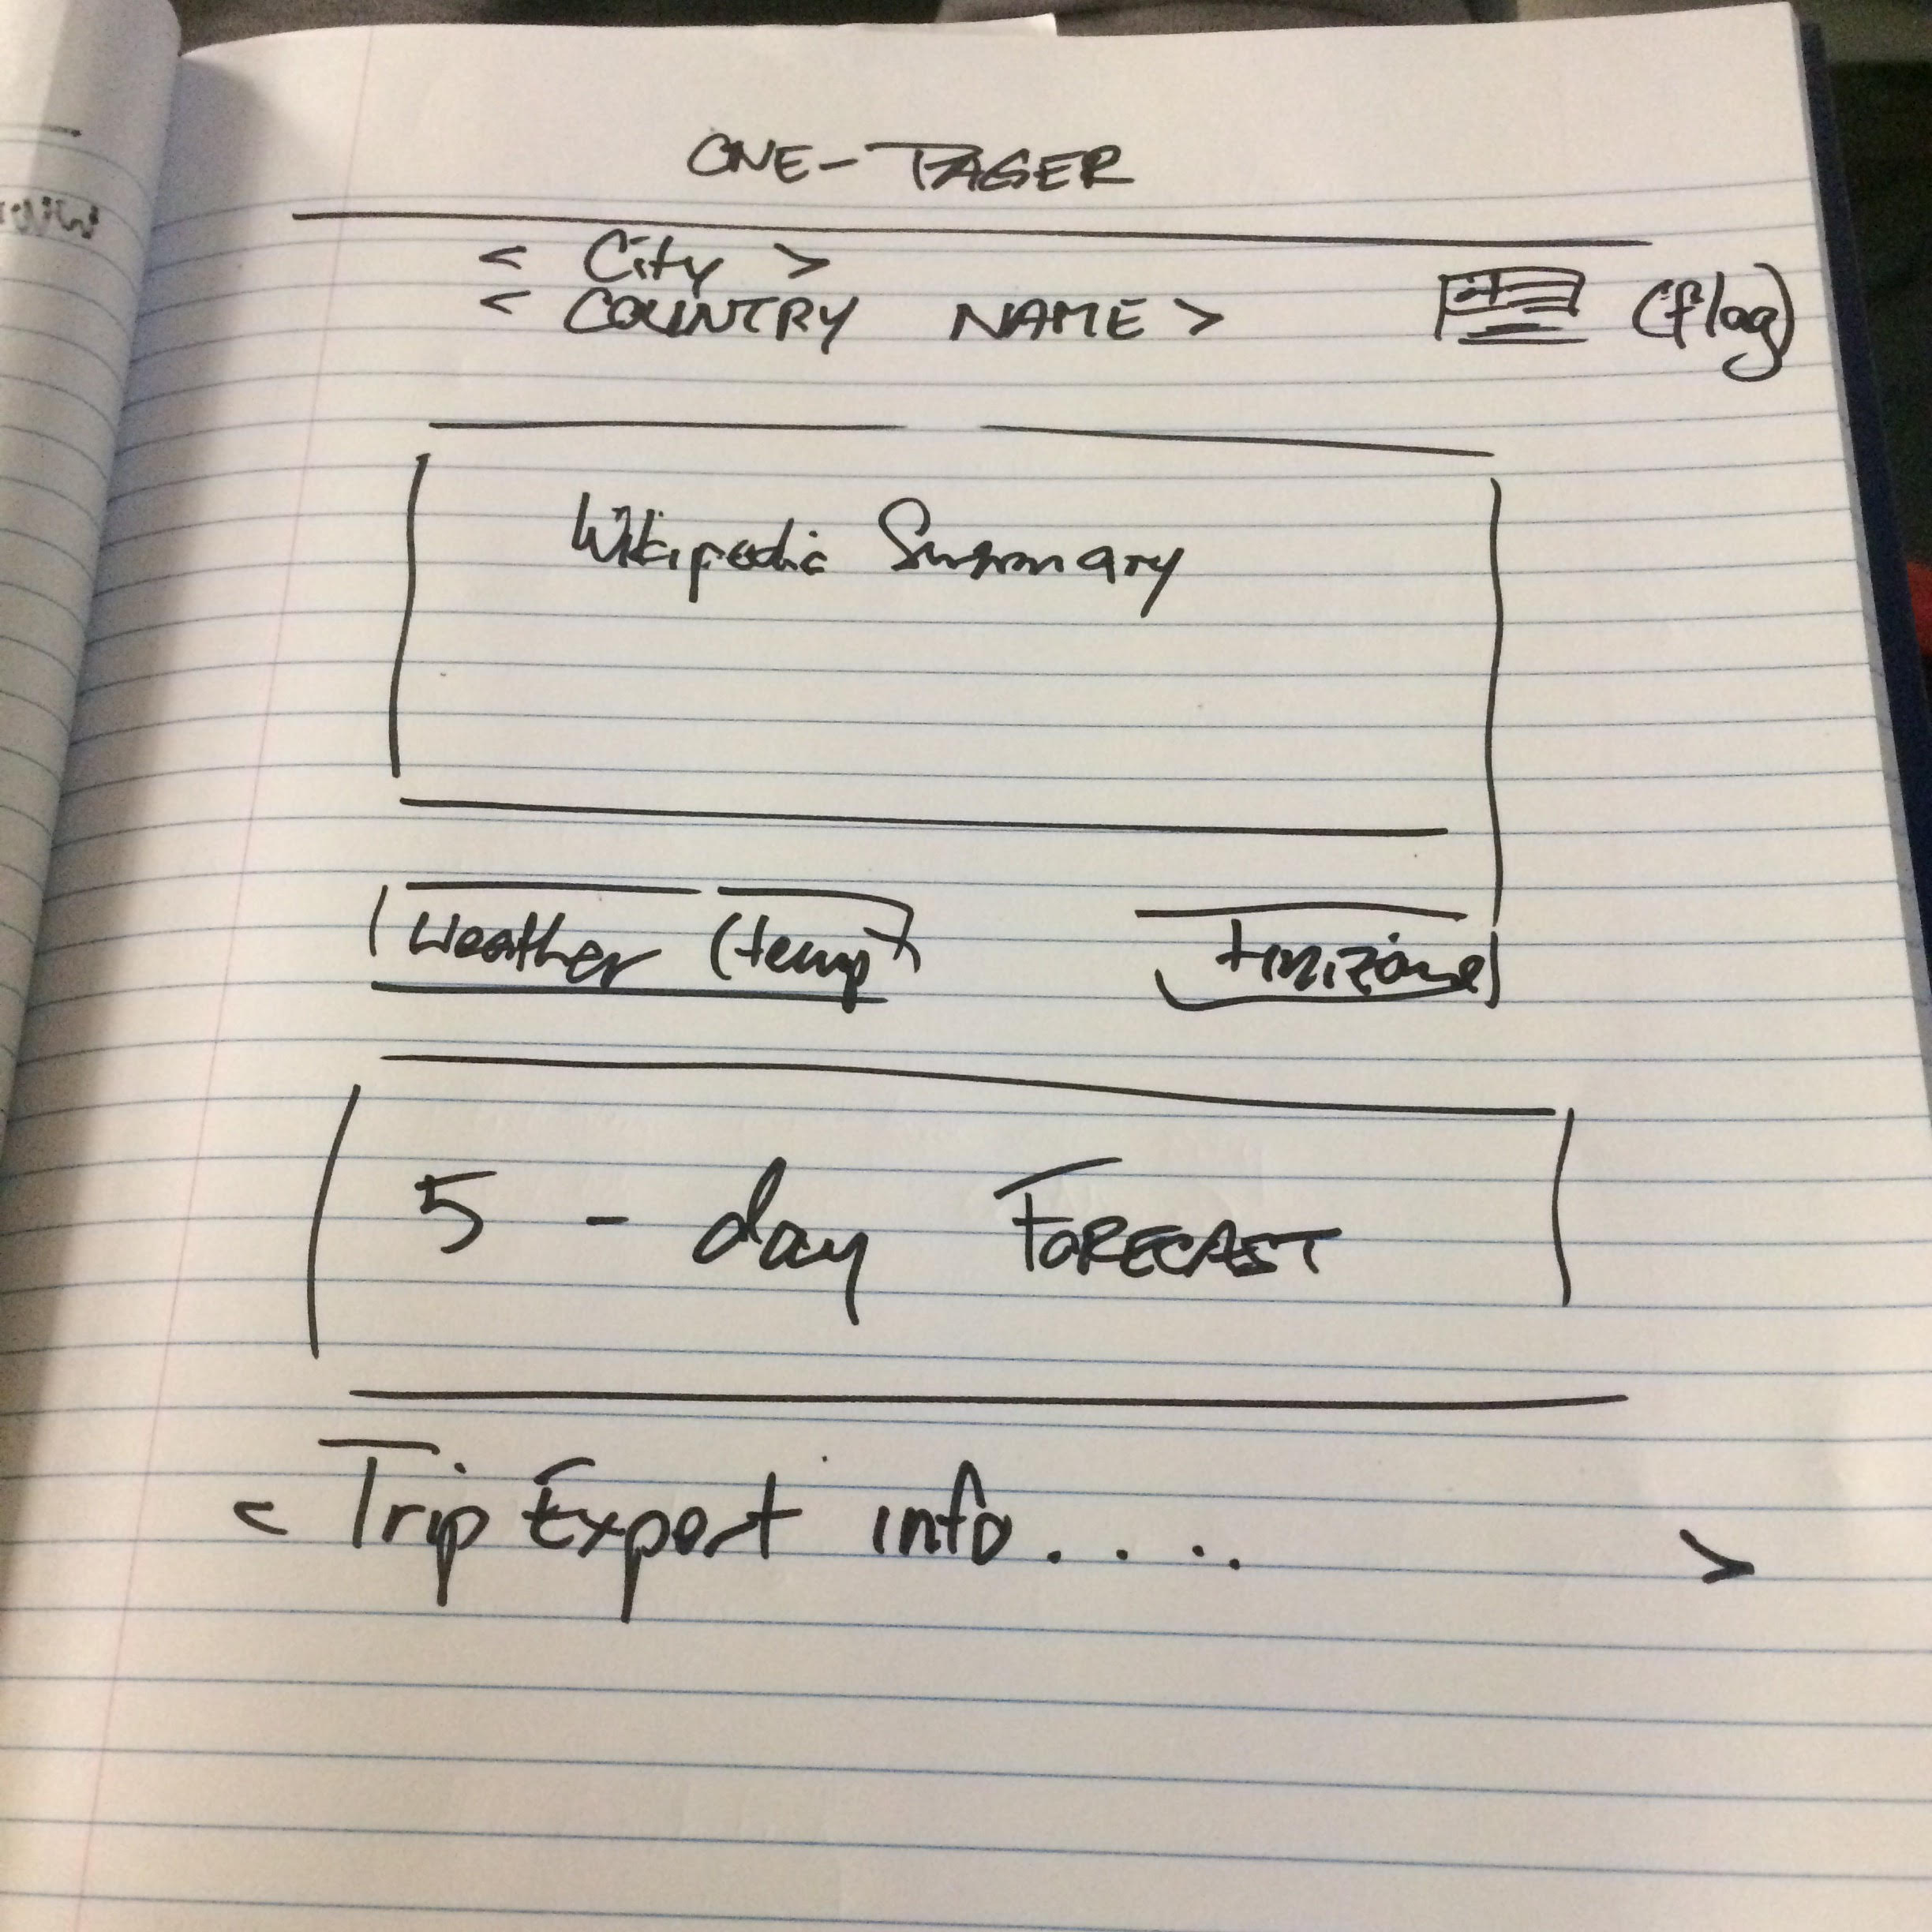 ONE-PAGER
< City >
< COUNTRY NAME >
(flag)
Wikipedia Summary
Weather (temp)
timezone
5 - day FORECAST
< Trip Expert info . . . . >